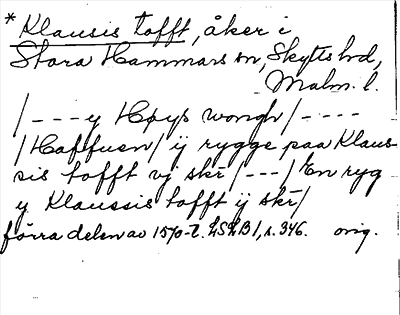 * Klausis tofft, åker i
Stora Hammars sn, Skytts hd,
Malm. l.
/---y Høys wongh/----
/Haffuen/ ij rygge paa Klaus-
sis tofft vj skr̄/---/ En ryg
y Klaussis tofft ij skr̄/
förra delen av 1570-t. LSLB 1, s. 346. orig.